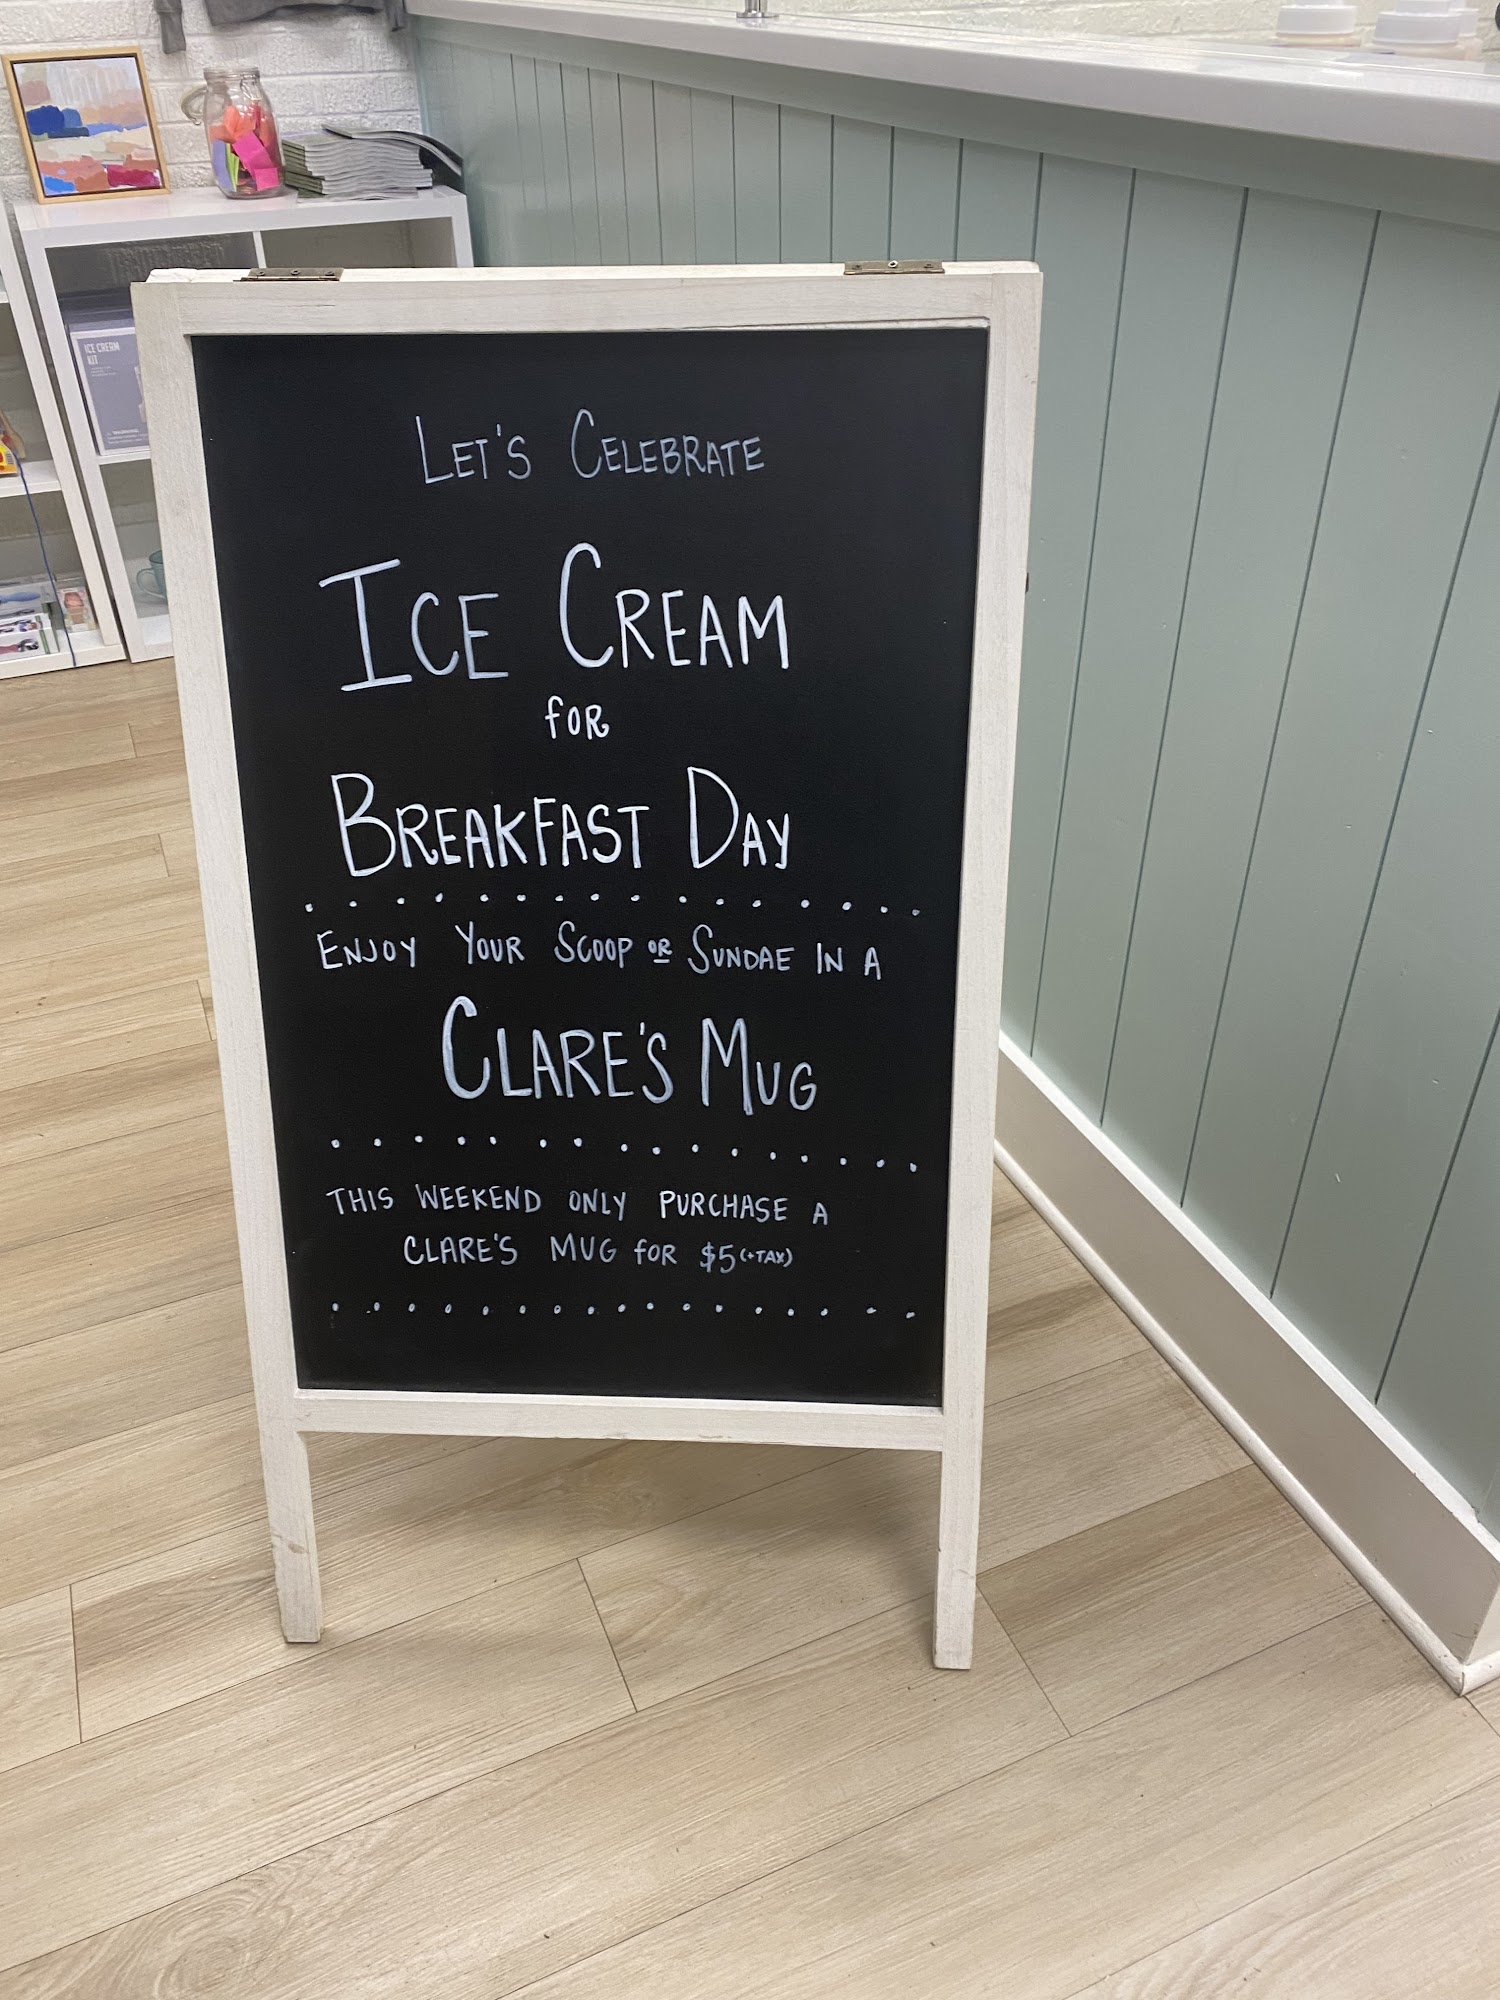 ICE CREAM
KIT
LET'S CELEBRATE
ICE CREAM
for
BREAKFAST DAY
ENJOY YOUR SCOOP OR SUNDAE IN A
CLARE'S MUG
THIS WEEKEND ONLY PURCHASE A
CLARE'S MUG for $5 (+TAX)